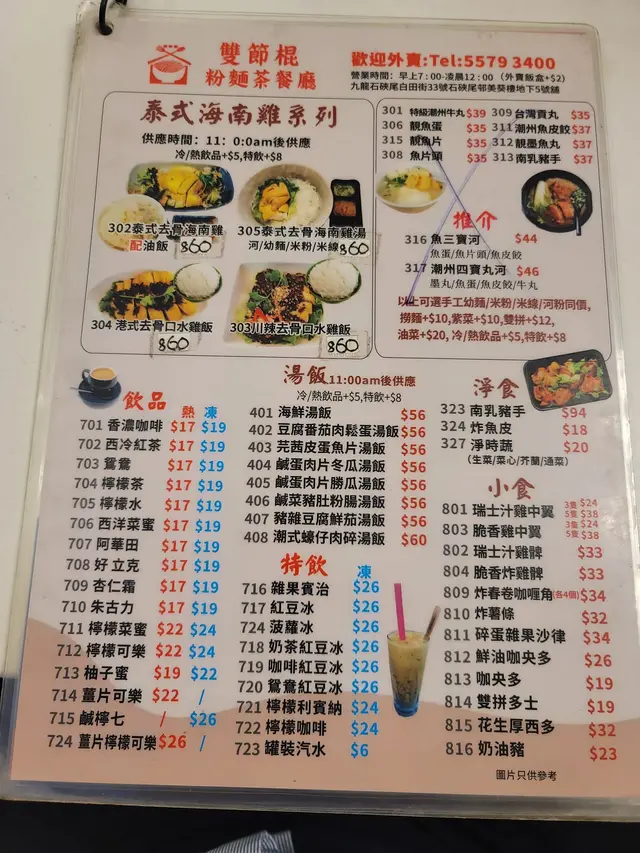 雙節棍
粉麵茶餐廳
歡迎外賣:Tel:5579 3400
營業時間：早上7:00-凌晨12:00（外賣飯盒+$2）
九龍石硤尾白田街33號石硤尾邨美葵樓地下5號舖
泰式海南雞系列
供應時間：11：0:0am後供應
冷/熱飲品+$5,特飲+$8
302泰式去骨海南雞
配油飯 $60
305泰式去骨海南雞湯
河/幼麵/米粉/米線 $60
304 港式去骨口水雞飯
$60
303川辣去骨口水雞飯
$60
301 特級潮州牛丸 $39
306 靚魚蛋 $35
315 靚魚片 $35
308 魚片頭 $35
309 台灣貢丸 $35
311 潮州魚皮餃 $37
312 靚墨魚丸 $37
313 南乳豬手 $37
推介
316 魚三寶河 $44
魚蛋/魚片頭/魚皮餃
317 潮州四寶丸河 $46
墨丸/魚蛋/魚皮餃/牛丸
以上可選手工幼麵/米粉/米線/河粉同價,
撈麵+$10,紫菜+$10,雙拼+$12,
油菜+$20, 冷/熱飲品+$5,特飲+$8
飲品 熱 凍
701 香濃咖啡 $17 $19
702 西冷紅茶 $17 $19
703 鴛鴦 $17 $19
704 檸檬茶 $17 $19
705 檸檬水 $17 $19
706 西洋菜蜜 $17 $19
707 阿華田 $17 $19
708 好立克 $17 $19
709 杏仁霜 $17 $19
710 朱古力 $17 $19
711 檸檬菜蜜 $22 $24
712 檸檬可樂 $22 $24
713 柚子蜜 $19 $22
714 薑片可樂 $22 /
715 鹹檸七 / $26
724 薑片檸檬可樂 $26 /
湯飯11:00am後供應
冷/熱飲品+$5,特飲+$8
401 海鮮湯飯 $56
402 豆腐番茄肉鬆蛋湯飯 $56
403 芫茜皮蛋魚片湯飯 $56
404 鹹蛋肉片冬瓜湯飯 $56
405 鹹蛋肉片勝瓜湯飯 $56
406 鹹菜豬肚粉腸湯飯 $56
407 豬雜豆腐鮮茄湯飯 $56
408 潮式蠔仔肉碎湯飯 $60
特飲 凍
716 雜果賓治 $26
717 紅豆冰 $26
724 菠蘿冰 $26
718 奶茶紅豆冰 $26
719 咖啡紅豆冰 $26
720 鴛鴦紅豆冰 $26
721 檸檬利賓納 $24
722 檸檬咖啡 $24
723 罐裝汽水 $6
淨食
323 南乳豬手 $94
324 炸魚皮 $18
327 淨時蔬 $20
（生菜/菜心/芥蘭/通菜）
小食
801 瑞士汁雞中翼 3隻$24 5隻$38
803 脆香雞中翼 3隻$24 5隻$38
802 瑞士汁雞髀 $33
804 脆香炸雞髀 $33
809 炸春卷咖喱角(各4個) $34
810 炸薯條 $32
811 碎蛋雜果沙律 $34
812 鮮油咖央多 $26
813 咖央多 $19
814 雙拼多士 $19
815 花生厚西多 $32
816 奶油豬 $23
圖片只供參考